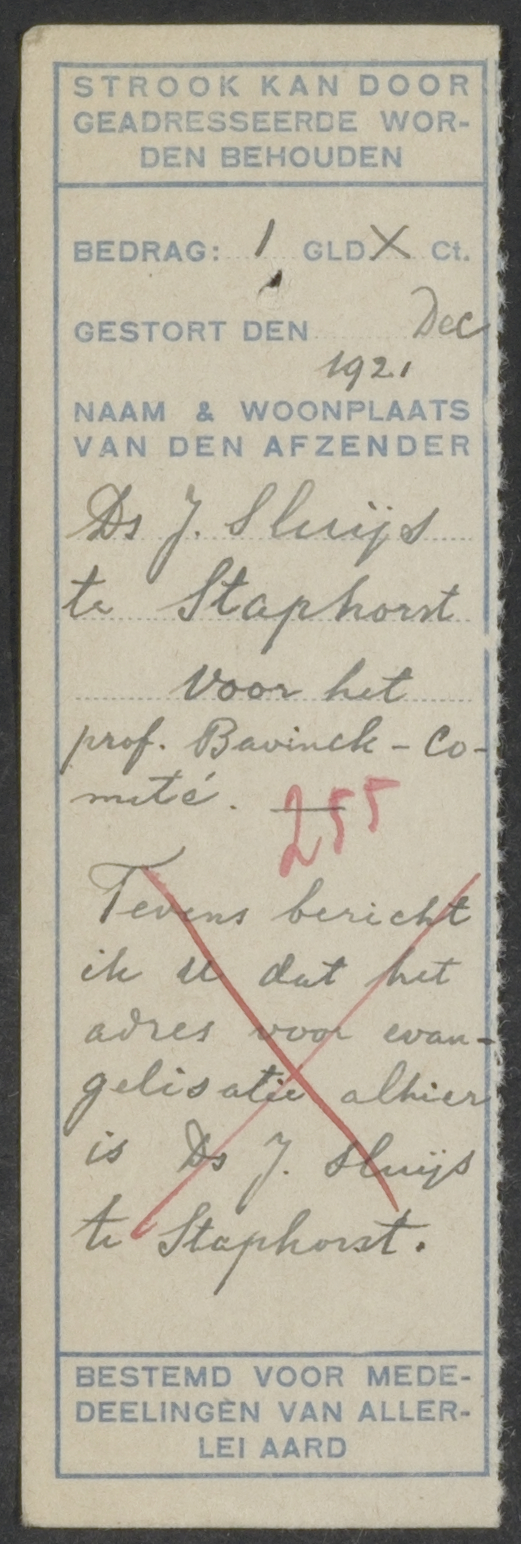 STROOK KAN DOOR
GEADRESSEERDE WOR-
DEN BEHOUDEN
BEDRAG: 1 GLD X Ct.
GESTORT DEN Dec
1921
NAAM & WOONPLAATS
VAN DEN AFZENDER
Ds J. Sluijs
te Staphorst
voor het
prof. Bavinck-Co-
mité. —
255
Tevens bericht
ik U dat het
adres voor evan-
gelisatie alhier
is Ds J. Sluijs
te Staphorst.
BESTEMD VOOR MEDE-
DEELINGEN VAN ALLER-
LEI AARD